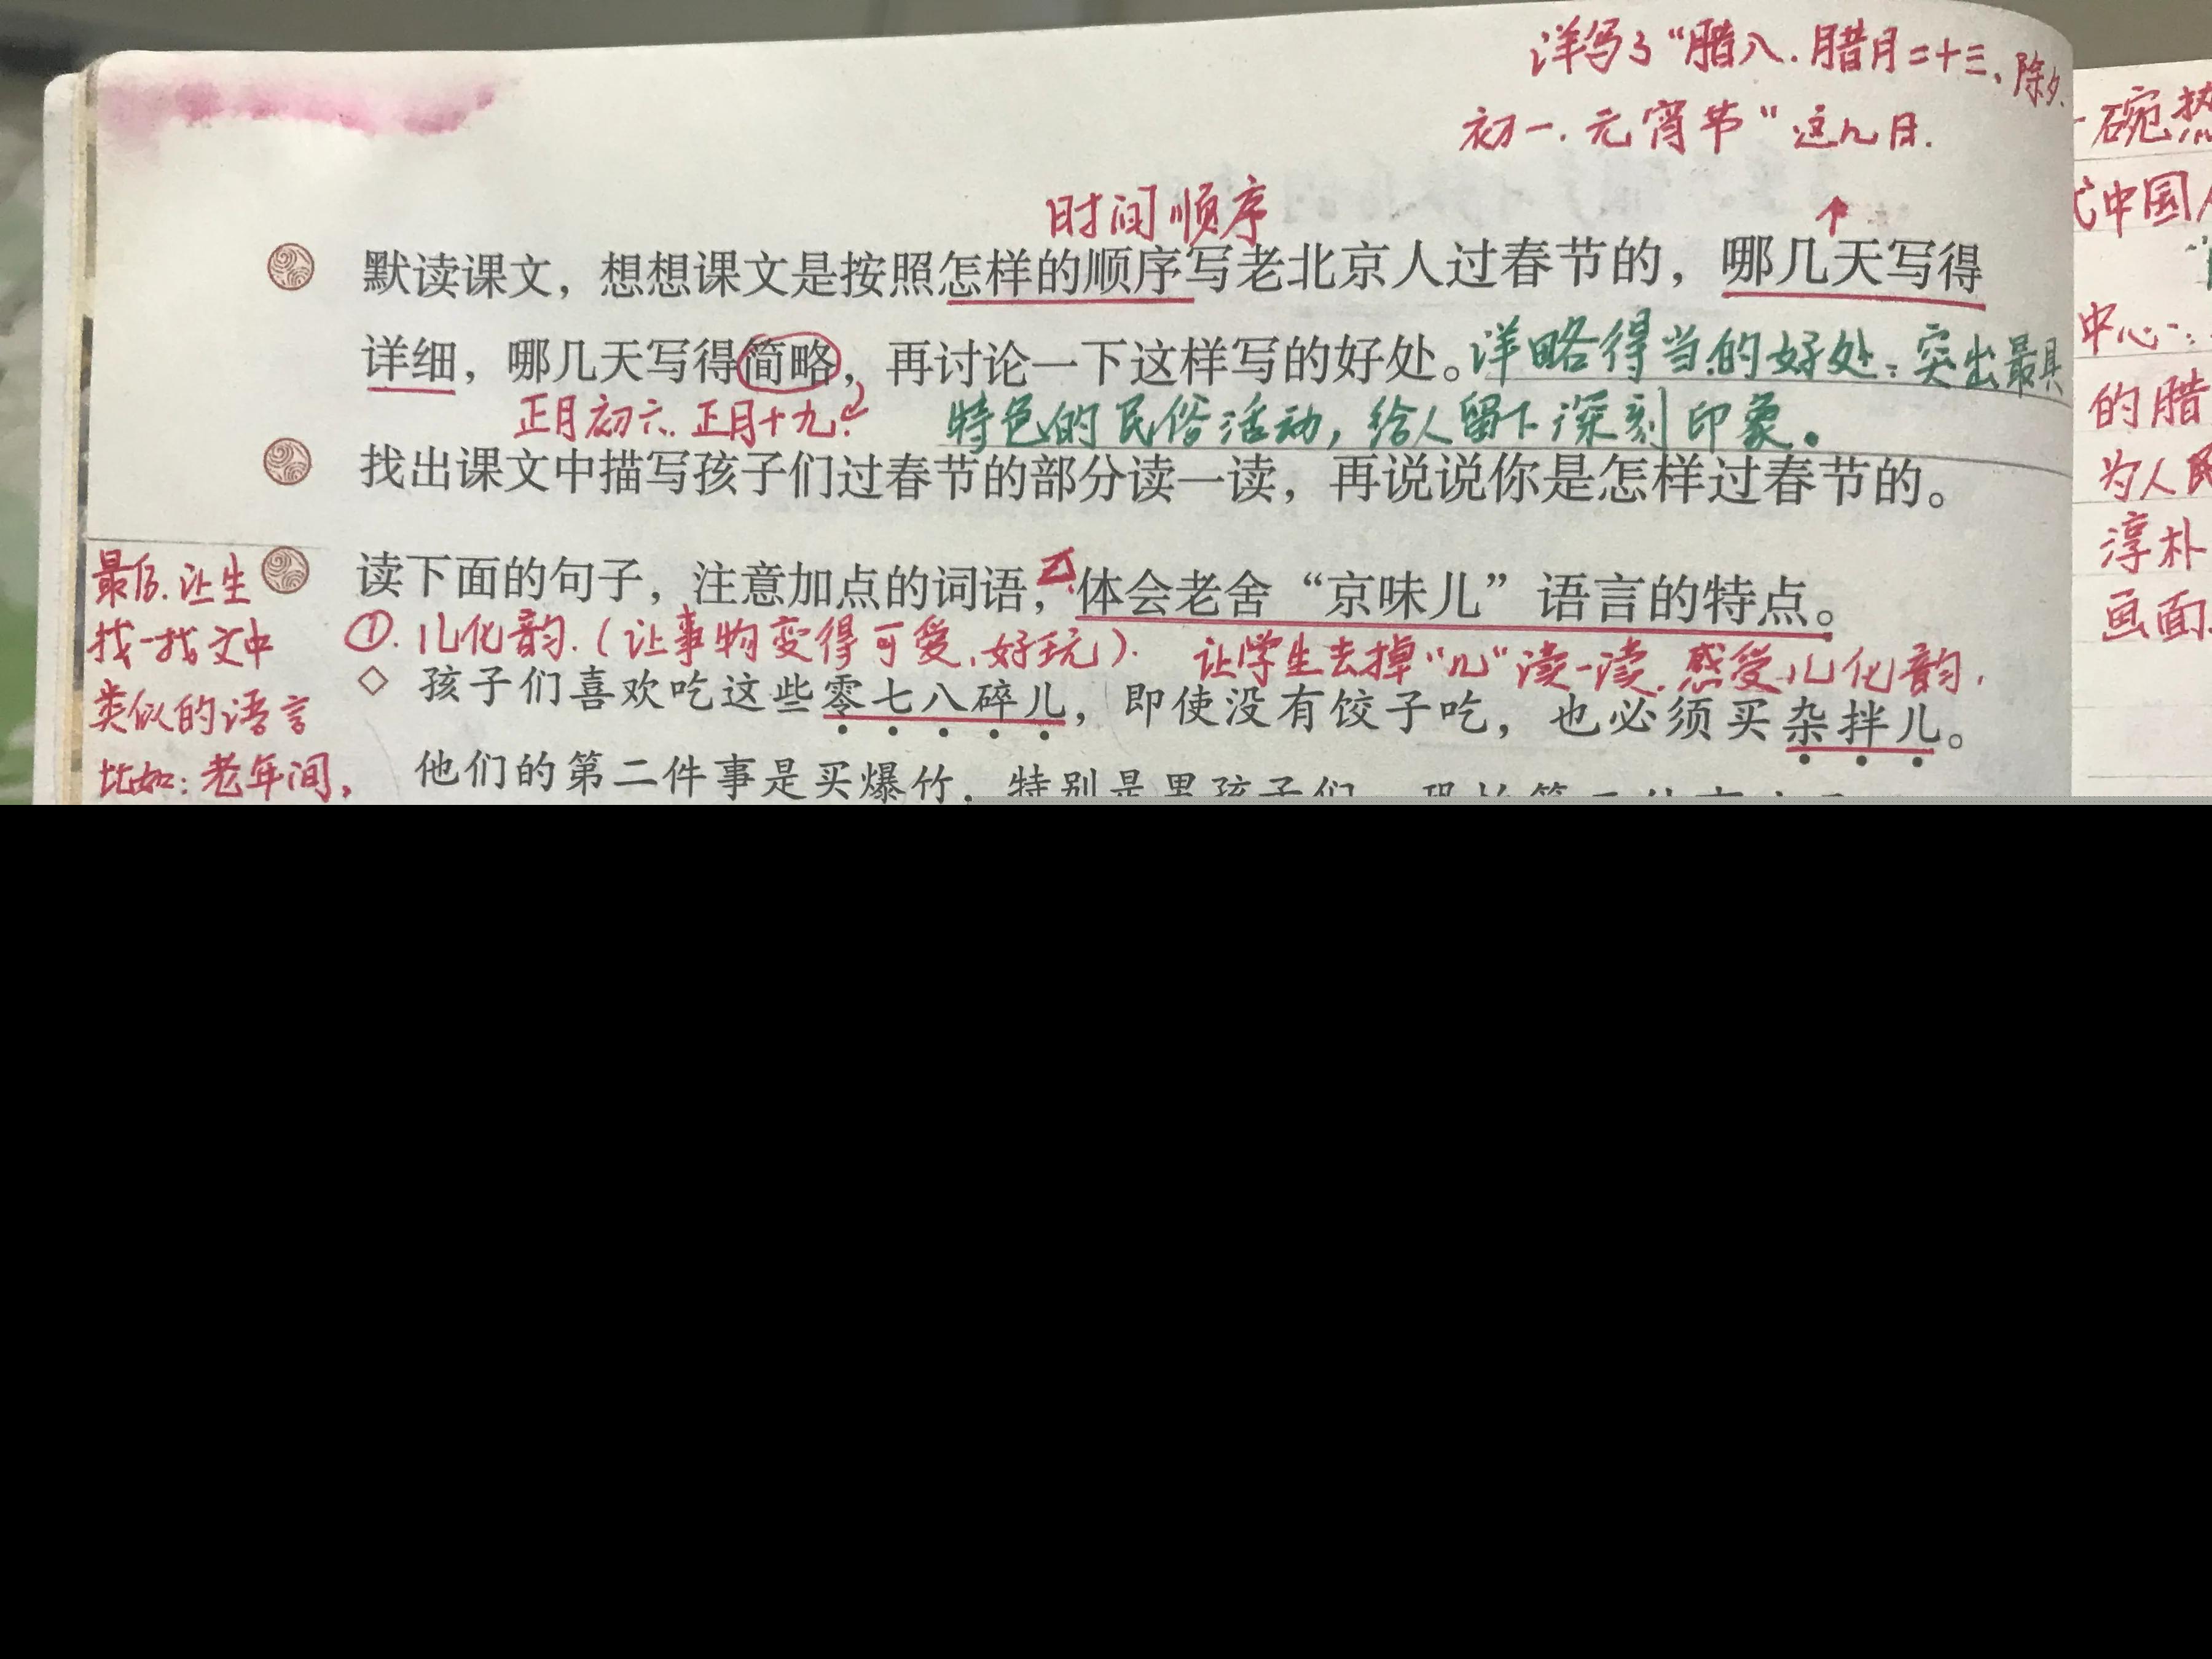 详写了“腊八.腊月二十三、除夕、
初一.元宵节”这几日.
时间顺序
默读课文，想想课文是按照怎样的顺序写老北京人过春节的，哪几天写得
详细，哪几天写得简略，再讨论一下这样写的好处。
详略得当的好处：突出最具
正月初六.正月十九.
特色的民俗活动，给人留下深刻印象。
找出课文中描写孩子们过春节的部分读一读，再说说你是怎样过春节的。
读下面的句子，注意加点的词语，体会老舍“京味儿”语言的特点。
①.儿化韵.(让事物变得可爱、好玩).
让学生去掉“儿”读一读.感受儿化韵.
孩子们喜欢吃这些零七八碎儿，即使没有饺子吃，也必须买杂拌儿。
他们的第二件事是买爆竹，特别是男孩子们
最后.让生
找一找文中
类似的语言
比如：老年间，
一碗热
代中国人
中心
的腊
为人民
淳朴
画面